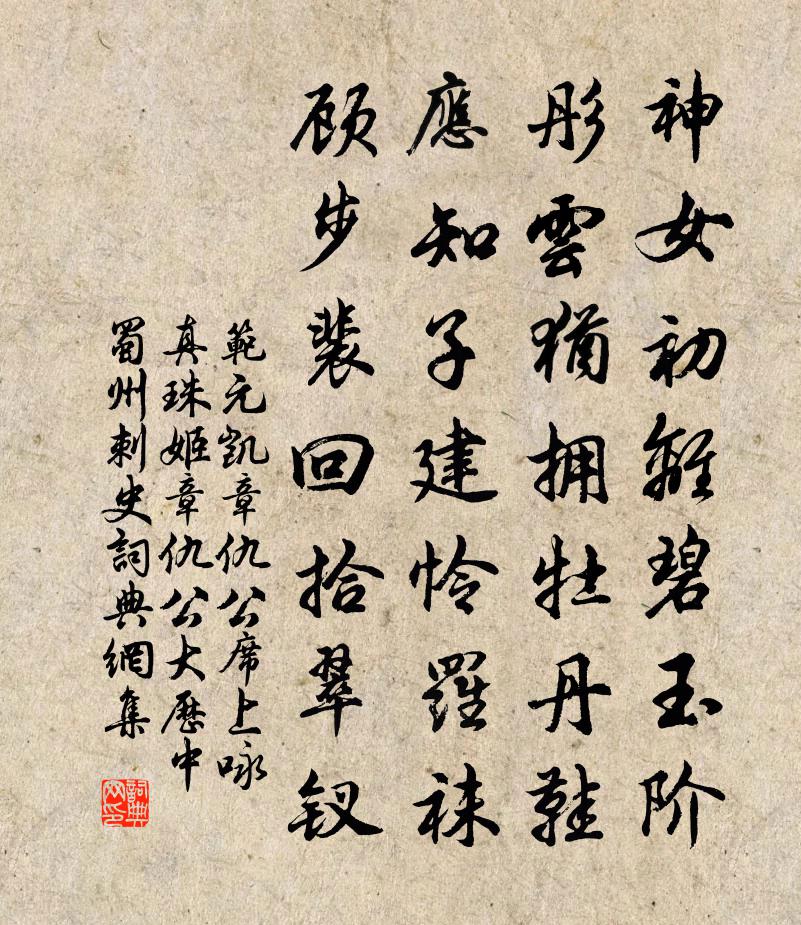 神女初離碧玉阶
彤雲猶拥牡丹鞋
應知子建怜羅袜
顾步裴回拾翠钗
範元凱章仇公席上咏
真珠姬章仇公大歷中
蜀州刺史詞典網集
詞典网印